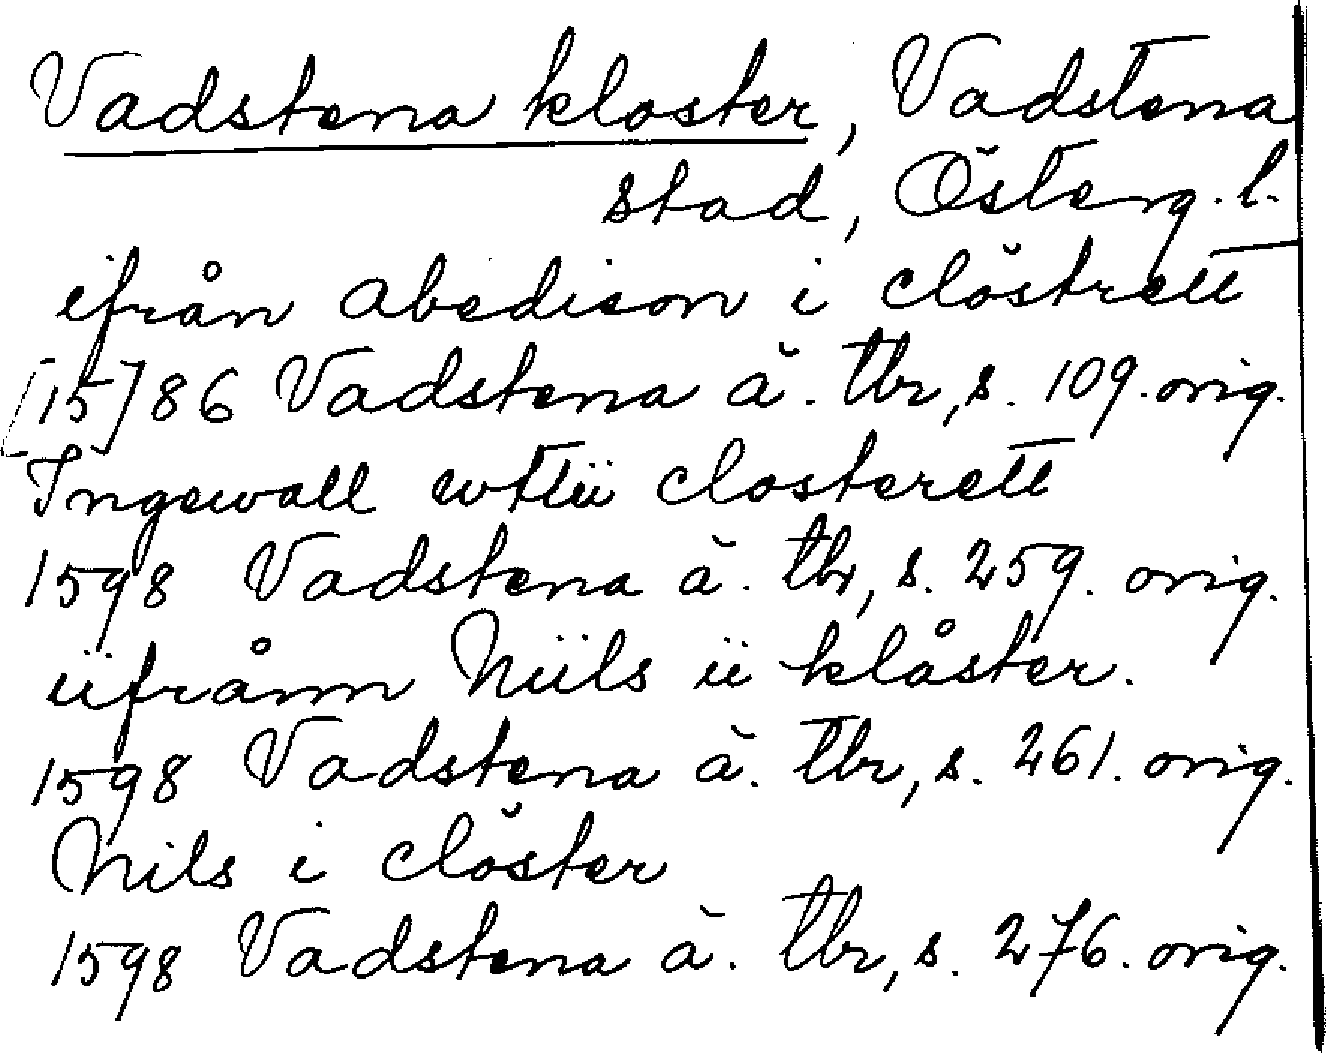 Vadstena kloster, Vadstena
stad, Österg. l.
ifrån abedison i clöstrett
[15]86 Vadstena ä. tbr, s. 109. orig.
Ingewall wttii closterett
1598 Vadstena ä. tbr, s. 259. orig.
iifrånn Niils ii klåster.
1598 Vadstena ä. tbr, s. 261. orig.
Nils i clöster
1598 Vadstena ä. tbr, s. 276. orig.